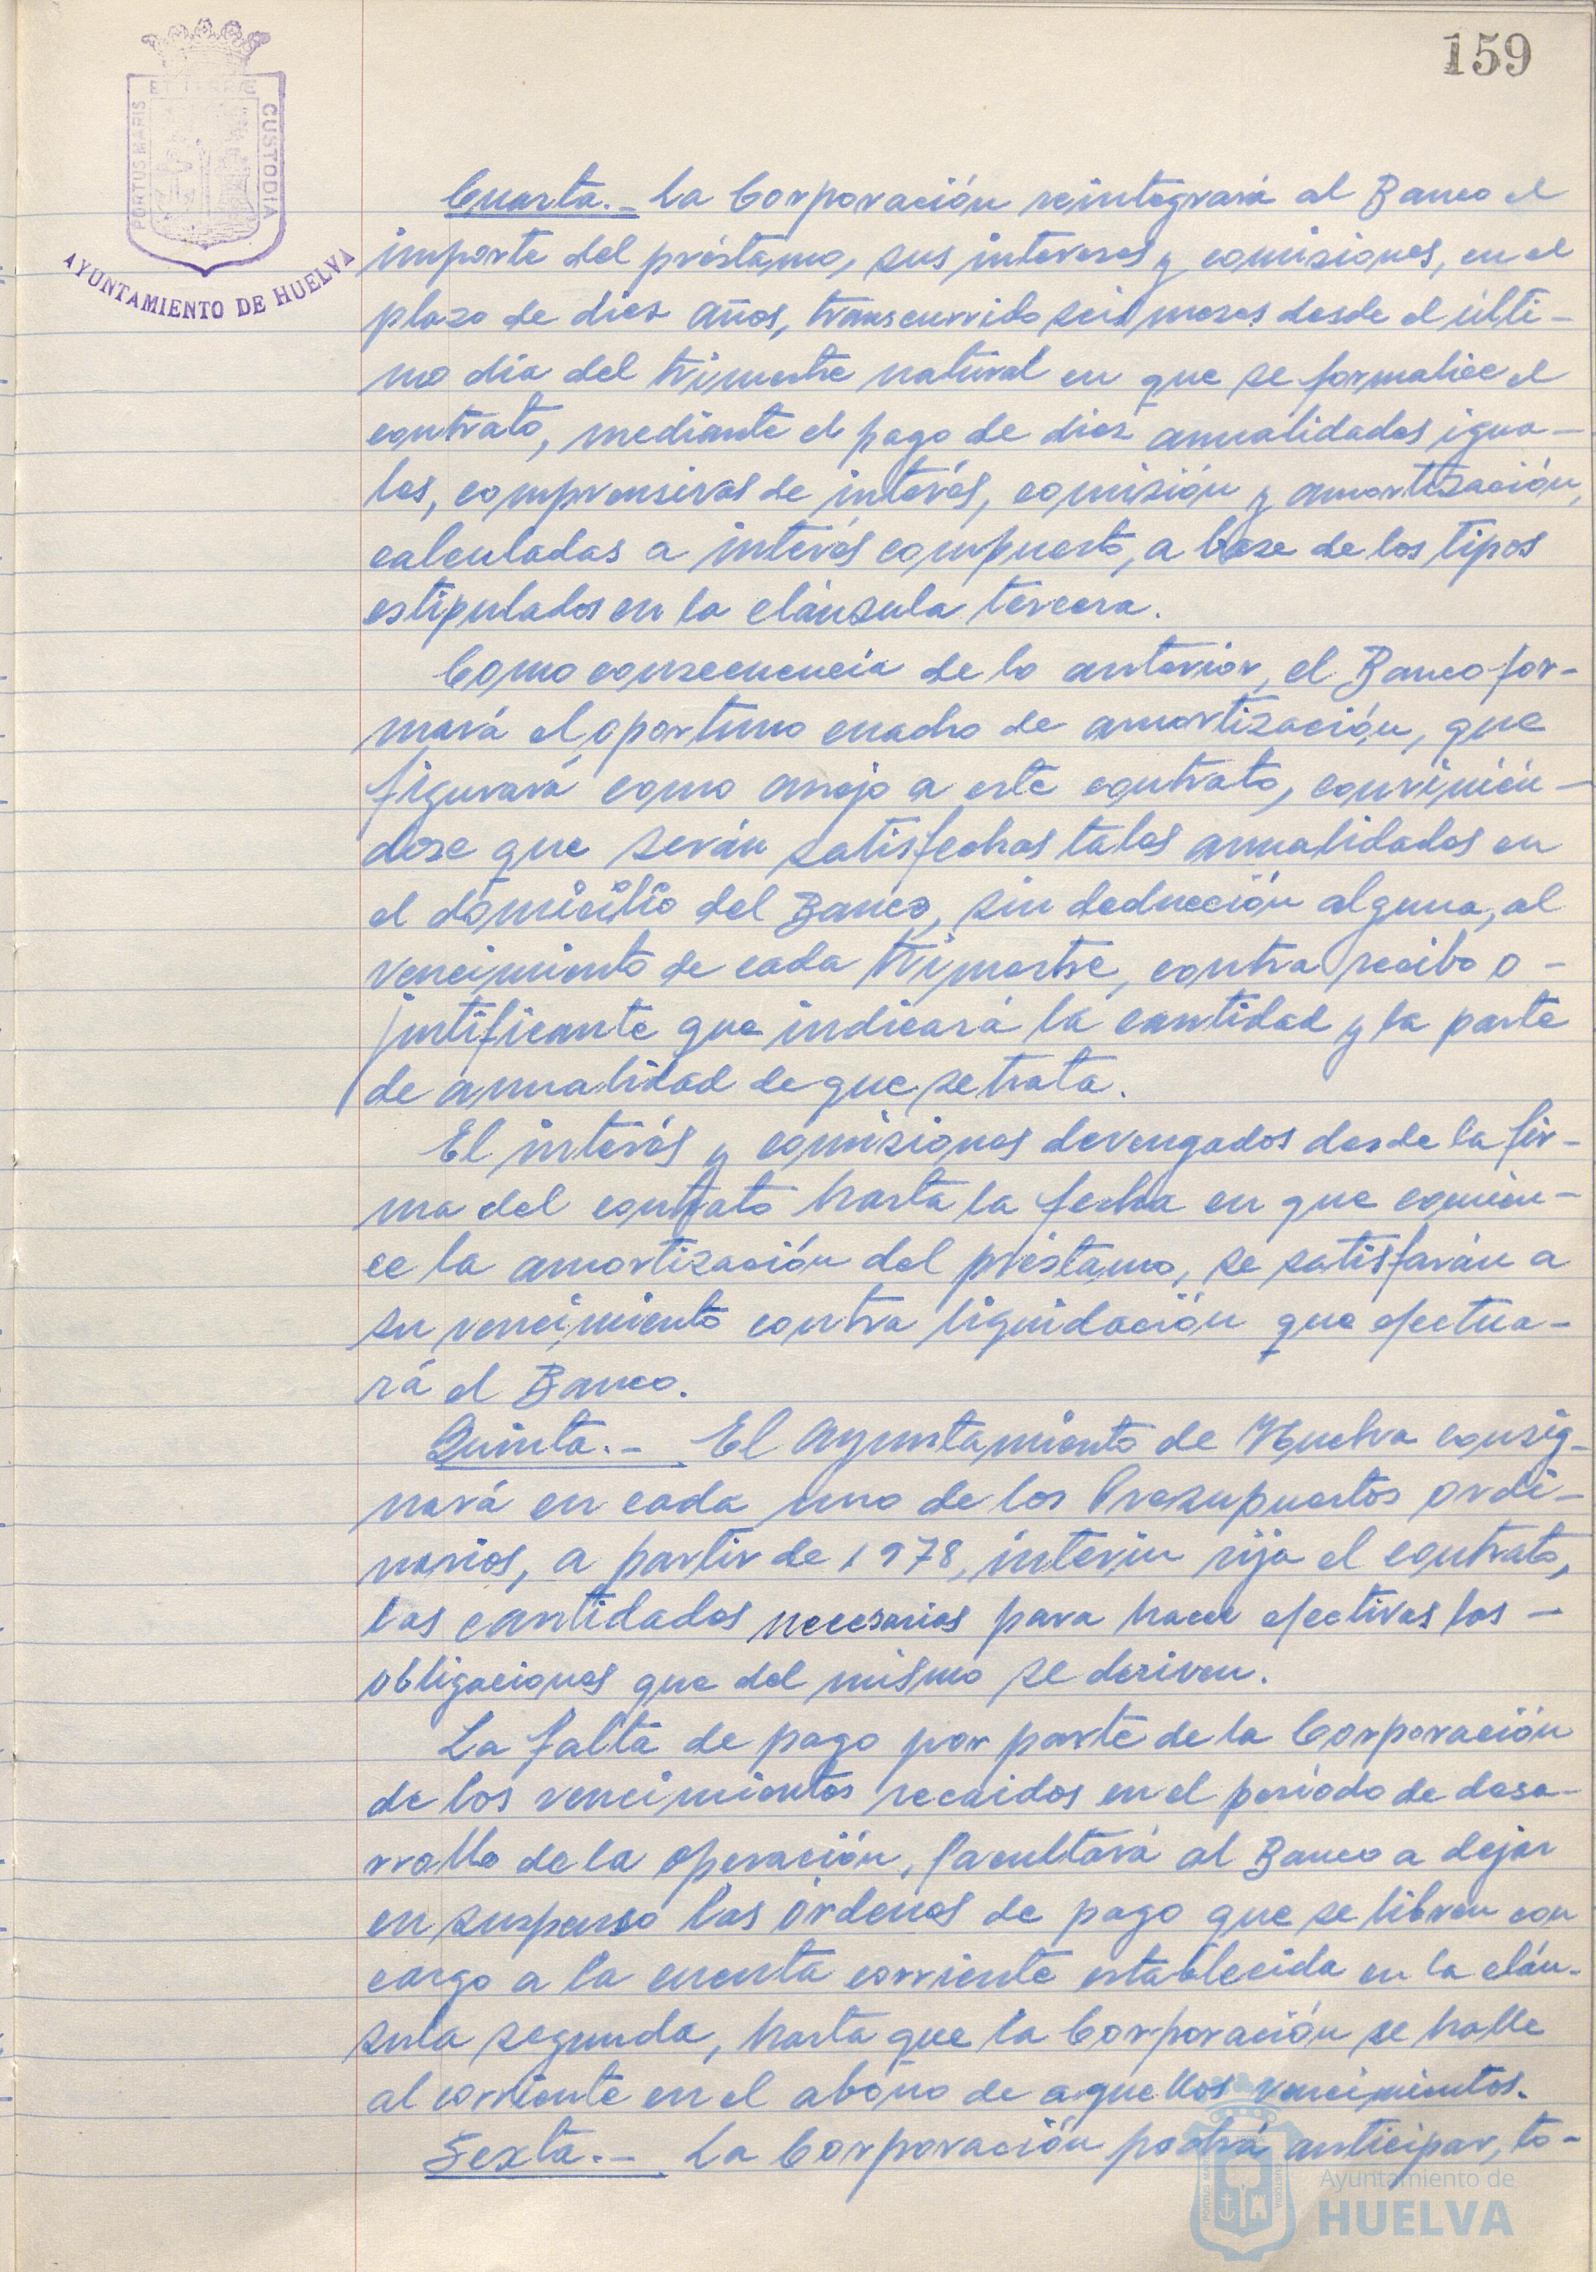 159
PORTUS MARIS ET TERRE CUSTODIA
AYUNTAMIENTO DE HUELVA
Cuarta.- La Corporación reintegrará al Banco el
importe del préstamo, sus intereses y comisiones, en el
plazo de diez años, transcurrido seis meses desde el últi-
mo día del trimestre natural en que se formalice el
contrato, mediante el pago de diez anualidades igua-
les, comprensivas de interés, comisión y amortización,
calculadas a interés compuesto, a base de los tipos
estipulados en la cláusula tercera.
Como consecuencia de lo anterior, el Banco for-
mará el oportuno cuadro de amortización, que
figurará como anejo a este contrato, convinién-
dose que serán satisfechas tales anualidades en
el domicilio del Banco, sin deducción alguna, al
vencimiento de cada trimestre, contra recibo o-
justificante que indicará la cantidad y la parte
de anualidad de que se trata.
El interés y comisiones devengados desde la fir-
ma del contrato hasta la fecha en que comien-
ce la amortización del préstamo, se satisfarán a
su vencimiento contra liquidación que efectua-
rá el Banco.
Quinta.- El Ayuntamiento de Huelva consig-
nará en cada uno de los Presupuestos ordi-
narios, a partir de 1978, ínterin rija el contrato,
las cantidades necesarias para hacer efectivas las -
obligaciones que del mismo se deriven.
La falta de pago por parte de la Corporación
de los vencimientos recaidos en el período de desa-
rrollo de la operación, facultará al Banco a dejar
en suspenso las órdenes de pago que se libren con
cargo a la cuenta corriente establecida en la cláu-
sula segunda, hasta que la Corporación se halle
al corriente en el abono de aquellos vencimientos.
Sexta.- La Corporación podrá anticipar, to-
Ayuntamiento de
HUELVA